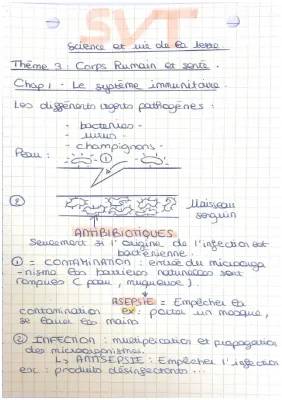 SVT
Science et vie de la terre
Thème 3 : Corps Humain et santé.
Chap 1 - Le système immunitaire.
Les différents agents pathogènes :
- bactéries -
- virus -
- champignons -
Peau :
①
②
Vaisseau
sanguin
ANTIBIBIOTIQUES
Seulement si l'origine de l'infection est
bactérienne.
① = CONTAMINATION : entrée du microorga
-nisme les barrières naturelles sont
rompues (peau, muqueuse).
ASEPSIE = Empêcher la
contamination ex : porter un masque,
se laver les mains
② INFECTION : multiplication et propagation
des microorganismes.
↳ ANTISEPSIE : Empêcher l'infection
ex : produits désinfectants ...